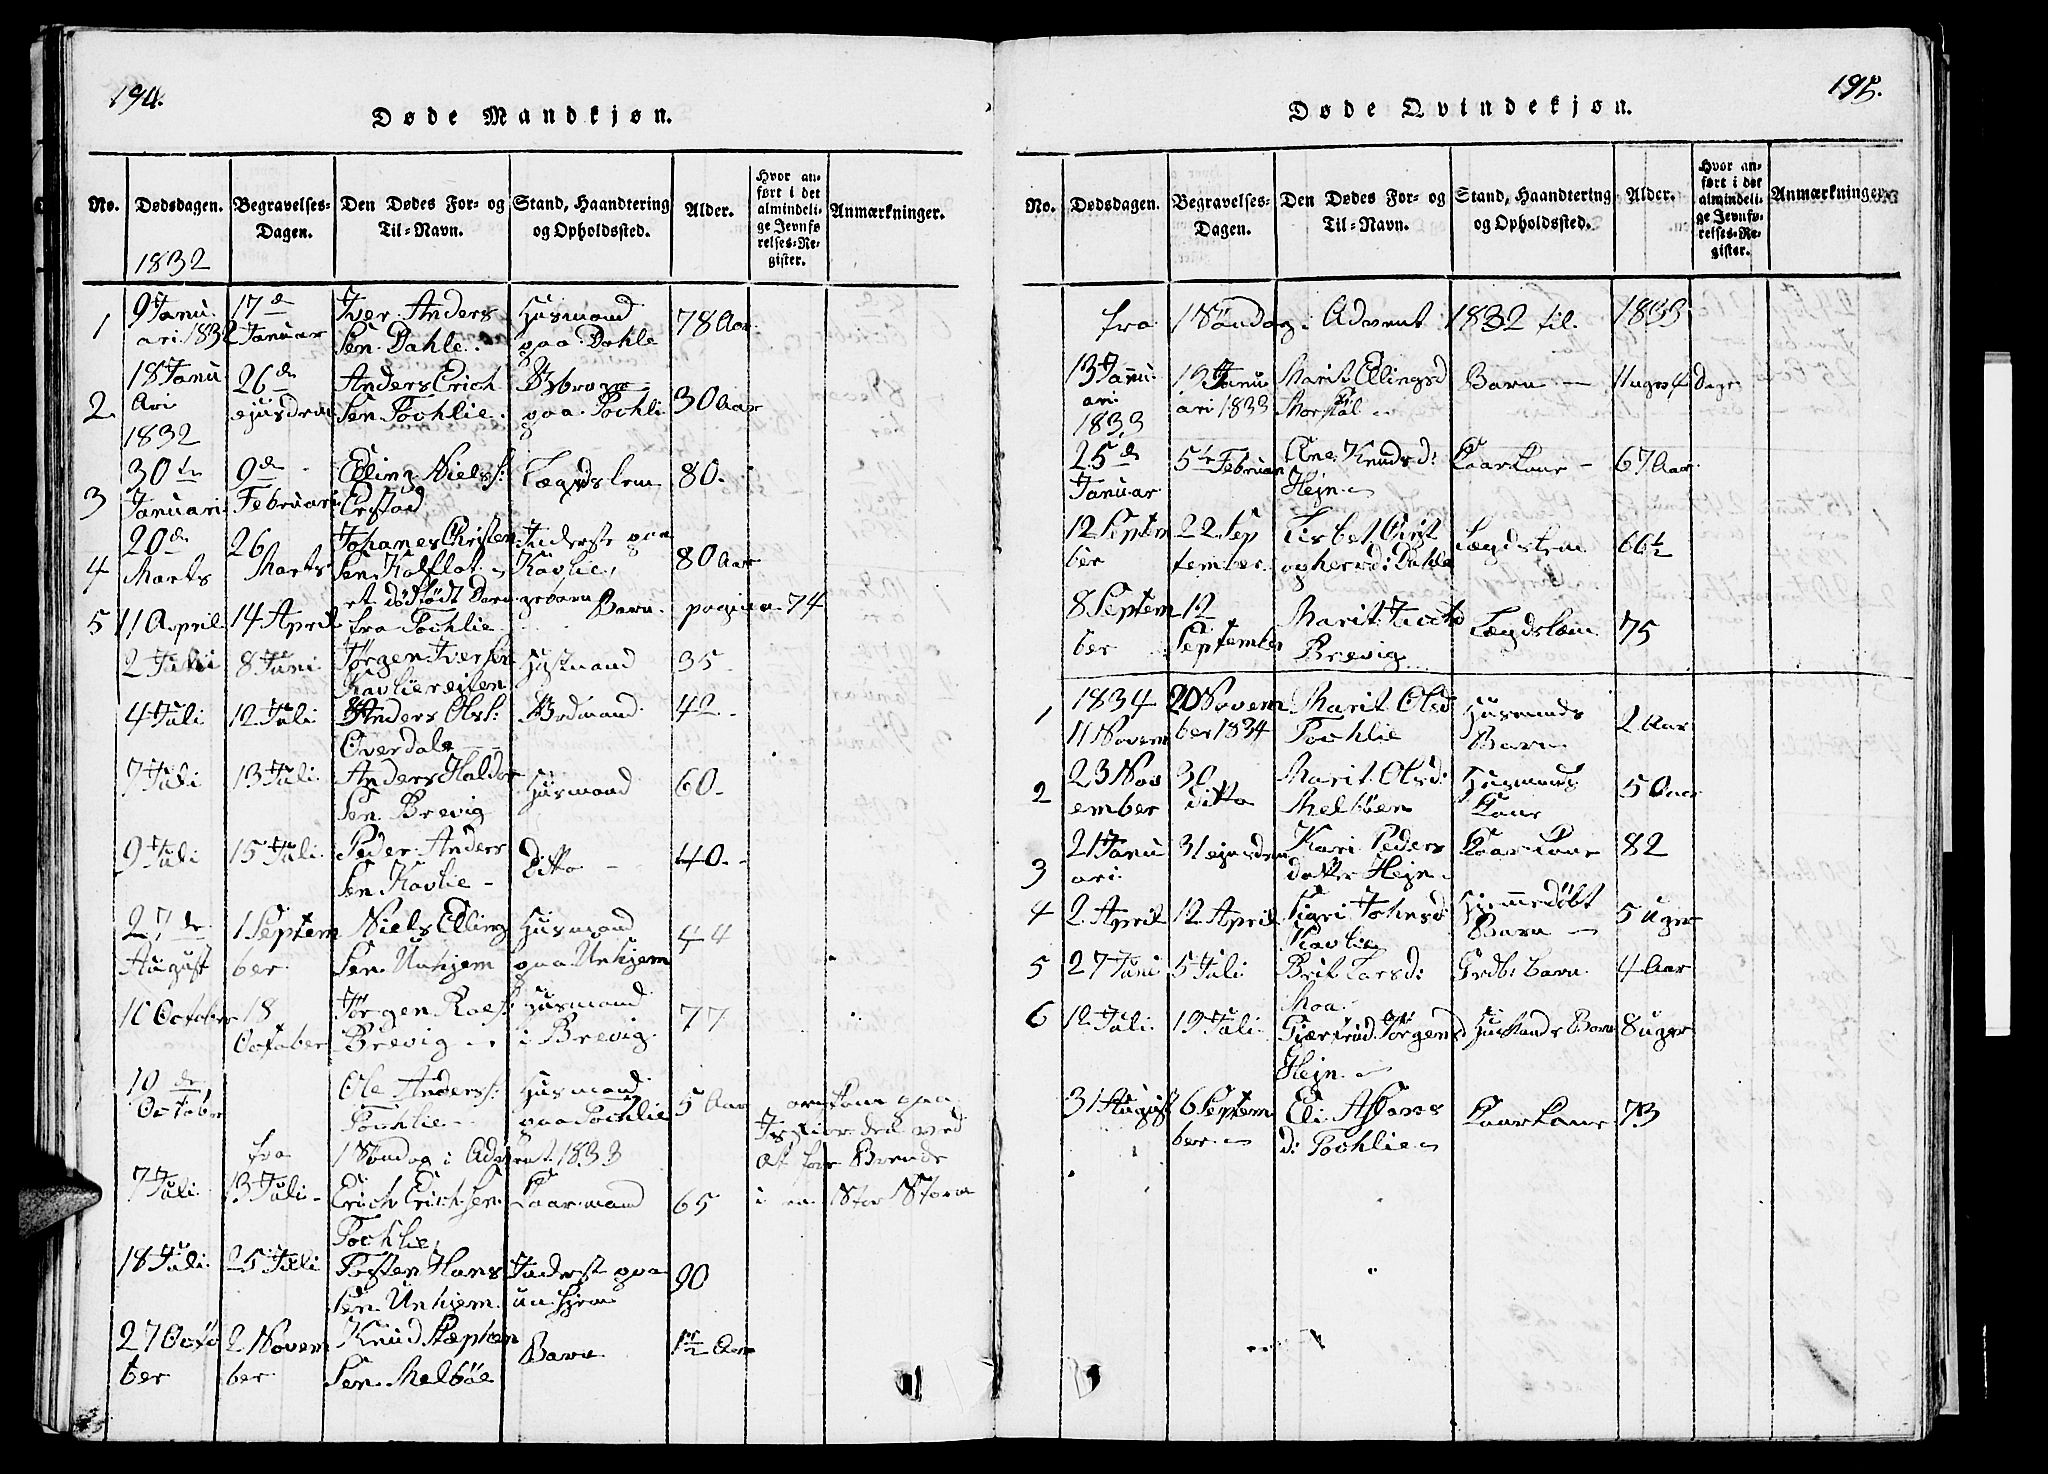 194.
Døde Mandkjøn.
No.
Dødsdagen.
Begravelses-
Dagen.
Den Dødes For- og
Til-Navn.
Stand, Haandtering
og Opholdssted.
Alder.
Hvor an-
ført i det
almindeli-
ge Jevnfø-
relses-Re-
gister.
Anmærkninger.
1832
1
9 Janu
ari 1832
17de
Januar
Iver Anders
Sen Dahle
Husmand
paa Dahle
78 Aar
2
18 Janu
Ari
1832
26de
ejusdem
Anders Erich
Sen Tochlie
paa Tochli
30 Aar
3
30te
Januari
9de
Februari
Elling Nielss:
Lægdslem
80.
4
20de
Marts
26
Marts
Johanes Christen
Sen Kalflot
Inderste paa
Kavlie,
80 Aar
5
11 April
14 April
et dødfödt Dren
gebarn
fra Tochlie
Barn.
pagina 74
2 Juli
8 Juni
Jørgen Iversen
Kavliereiten
Husmand
35
4 Juli
12 Juli
Anders Olss:
Överdale
42
7 Juli
13 Juli
Anders Haldor
Sen Brevig
Husmand
60
9 Juli
15 Juli
Peder Anders
Sen Kavlie
Ditto
40
27de
August
1 Septem
ber
Niels Elling
Sen Unhjem
Husmand
paa Unhjem
44
10 October
18
October
Jørgen Roes:
Brevig
Husmand
i Brevig
77
10de
October
Ole Anderss:
Tochlie
Husmand
paa Tochlie
5 Aar
omkom paa
ved
i en Stor Storm
fra 1 Söndag i Advent 1833
7 Juli
13 Juli
Erich Erichsen
Tochlie,
Kaarmand
65
18 Juli
25 Juli
Tosten Hans
Sen Unhjem
Inderst paa
unhjem
90
27 Octo
ber
2 Novem
ber
Knud Stephen
Sen Melböe
Barn
1 1/2 Aar
195.
Døde Qvindekjøn.
No.
Dødsdagen.
Begravelses-
Dagen.
Den Dødes For- og
Til-Navn.
Stand, Haandtering
og Opholdssted.
Alder.
Hvor an-
ført i det
almindeli-
ge Jevnfø-
relses-Re-
gister.
Anmærkninger.
fra 1 Söndag i Advent 1832 til 1833
13 Janu
ari
1833
19 Janu
ari 1833
Marit Ellingsd
Morstöl
Barn
11 uger 4 Dage
25de
Januar
5te Februar
Ane Knudsd:
Hejn
Kaarkone
67 Aar
12 Septem
ber
22 Sep
tember
Lisbet Crist
ophersd: Dahle
Lægdslem
66 1/2
8 Septem
ber
September
Marit
Brevig
Lægdslem
75
1
1834
11 Novem
20 Novem
ber 1834
Marit Olsd
Tochlie
Husmands
Barn
2 Aar
2
23 Nov
ember
30
ditto
Marit Olsd:
Melböen
Husmands
Kone
50 Aar
3
21 Janu
ari
31 ejusdem
Kari Peders
datter Hejn
Kaarkone
82
4
2 April
12 April
Sigri Johnsd
Kavlie
Hjemmedöbt
Barn
5 Uger
5
27 Juni
5 Juli
Brit Larsd:
Moa
Grdb: Barn
4 Aar
6
12 Juli
19 Juli
Giærtrud Jörgensd
Hejn
Husmands Barn
8 uger
31 August
6 Septem
ber
Eli Aslans
d: Tochlie
Kaarkone
73